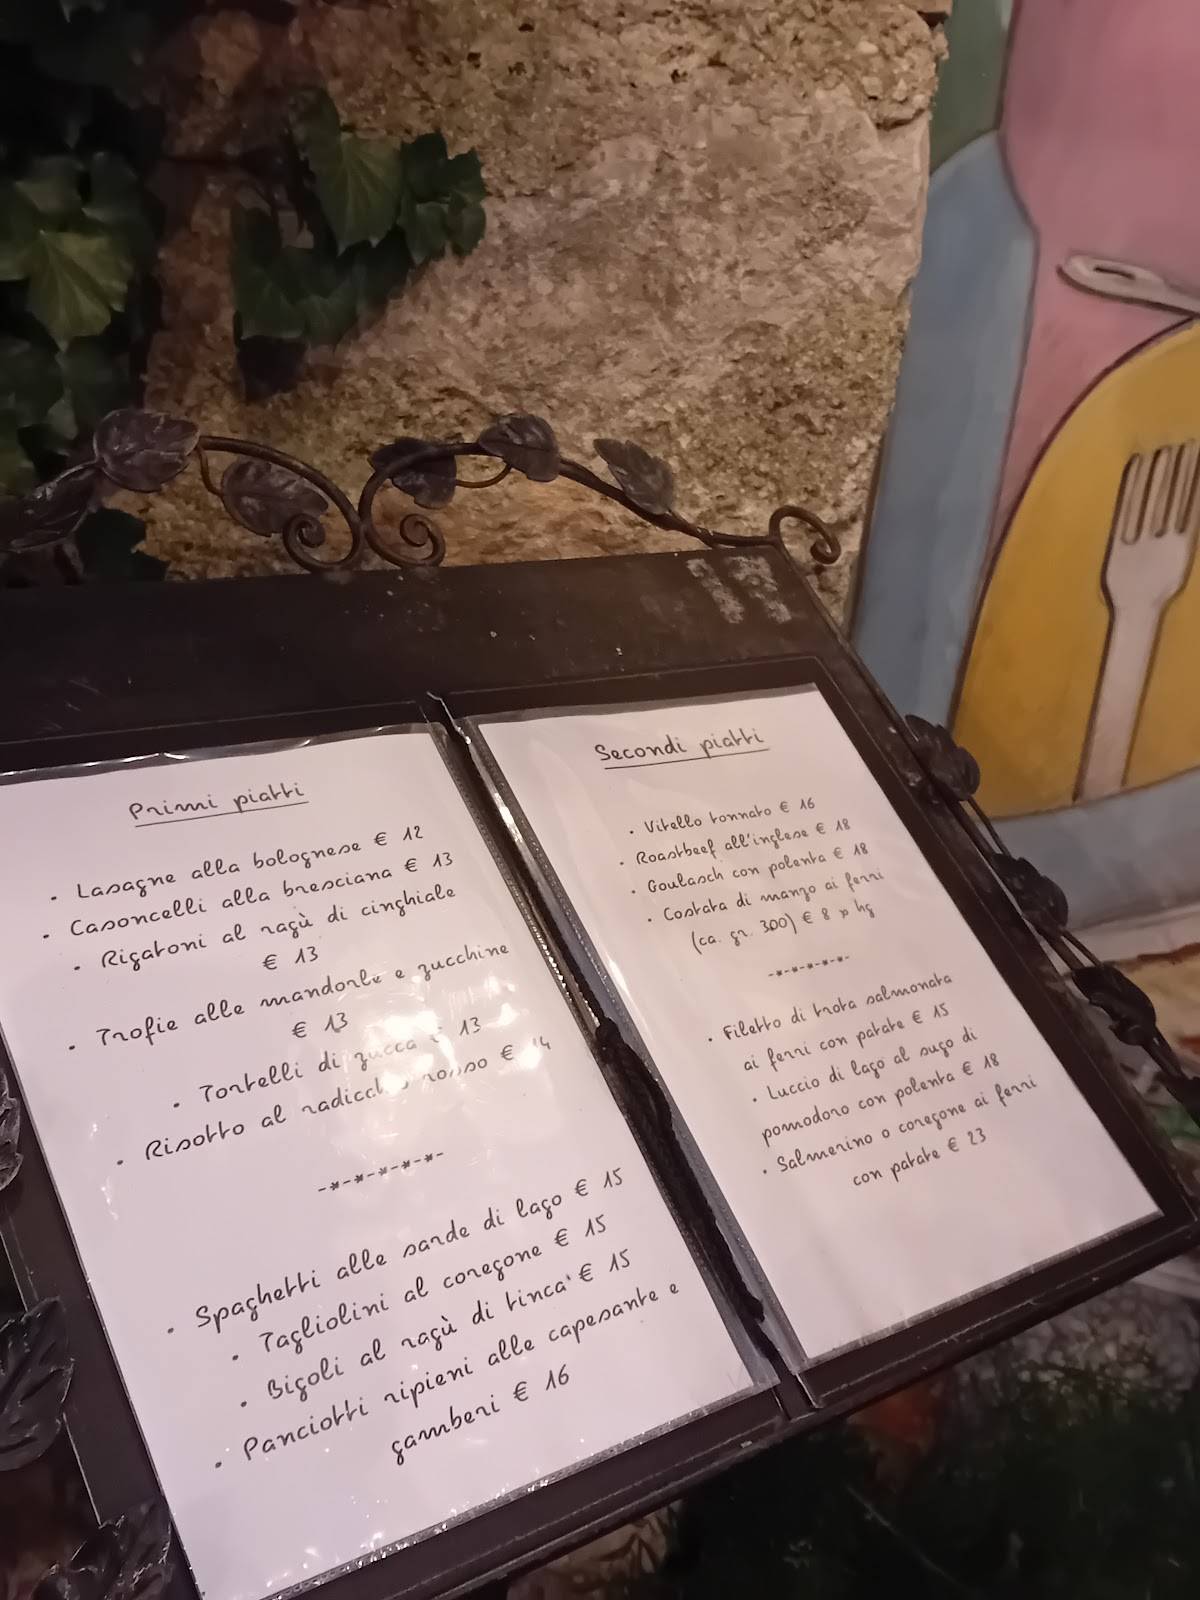 Primi piatti
• Lasagne alla bolognese € 12
• Casoncelli alla bresciana € 13
• Rigatoni al ragù di cinghiale
€ 13
• Trofie alle mandorle e zucchine
€ 13
• Tortelli di zucca € 13
• Risotto al radicchio rosso € 14
-*-*-*-*-*-
• Spaghetti alle sarde di lago € 15
• Tagliolini al coregone € 15
• Bigoli al ragù di tinca € 15
• Panciotti ripieni alle capesante e
gamberi € 16
Secondi piatti
• Vitello tonnato € 16
• Roastbeef all'inglese € 18
• Goulasch con polenta € 18
• Costata di manzo ai ferri
(ca. gr. 300) € 8 x hg
-*-*-*-*-*-
• Filetto di trota salmonata
ai ferri con patate € 15
• Luccio di lago al sugo di
pomodoro con polenta € 18
• Salmerino o coregone ai ferri
con patate € 23